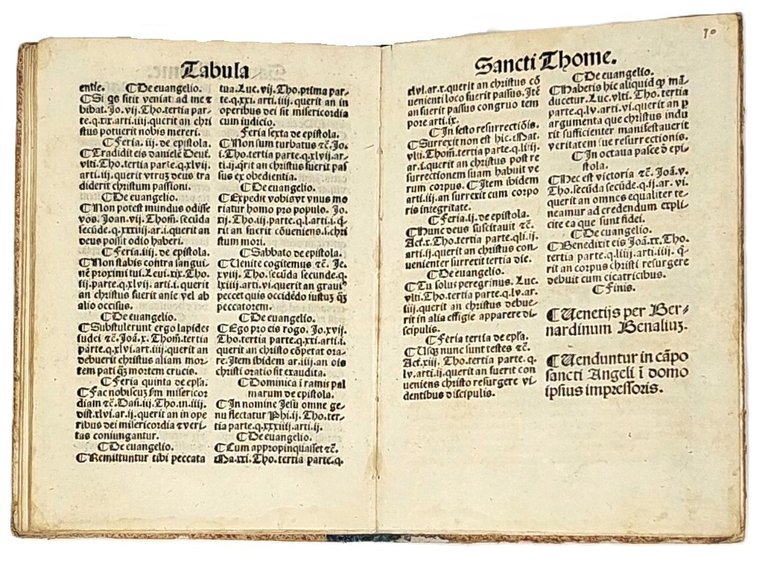 Tabula
entie. ⸿De euangelio.
⸿Si qͦs sitit veniat ad me et
bibat. Jo. vij. Tho. tertia par-
te. q. xix. arti. iiij. querit an chri
stus potuerit nobis mereri.
⸿Feria. iij. de epistola.
⸿Tradidit eis danielē Deut.
vlti. Tho. tertia parte. q. xlvij.
arti. iij. querit vtruȝ deus tra
diderit christum passioni.
⸿De euangelio.
⸿Non potest mundus odisse
vos. Joan. vij. Thom. secūda
secūde. q. xxxiiij. ar. i. querit an
deus possit odio haberi.
⸿Feria. iiij. de epistola.
⸿Non stabis contra sangui
nē proximi tui. Leui. xix. Tho.
iij. parte. q. xlvij. arti. i. querit
an christus fuerit a se vel ab
alio occisus.
⸿De euangelio.
⸿Sustulerunt ergo lapides
iudei ⁊c̄. Joā. x. Thom. tertia
parte. q. xlvi. arti. iiij. querit an
debuerit christus aliam mor-
tem pati qȝ mortem crucis.
⸿Feria quinta de epľa.
⸿Fac nobiscuȝ ſm misericor
diam ⁊c̄. Dañ. iij. Tho. in. iiij.
dist. xlvi. ar. ij. querit an in ope
ribus dei misericordia ⁊ veri-
tas coniungantur.
⸿De euangelio.
⸿Remittuntur tibi peccata
tua. Luc. vij. Tho. prima par-
te. q. xxi. arti. iiij. querit an in
operibus dei sit misericordia
cum iudicio.
Feria sexta de epistola.
⸿Non sum turbatus ⁊c̄. Jo.
i. Tho. tertia parte. q. xlvij. ar-
ti. ij. querit an christus fuerit pas
sus ex obedientia.
⸿De euangelio.
⸿Expedit vobis vt vnus mo
riatur homo pro populo. Jo.
xi. Tho. iij. parte. q. l. arti. i. q̄-
rit an fuerit cōueniens. i. chri
stum mori.
⸿Sabbato de epistola.
⸿Uenite cogitemus ⁊c̄. Je.
xviij. Tho. secūda secunde. q.
lxiiij. arti. vi. querit an grauiꝰ
peccet quis occidēdo iustuȝ qȝ
peccatorem.
⸿De euangelio.
⸿Ego pro eis rogo. Jo. xvij.
Tho. tertia parte. q. xxi. arti. i.
querit an christo cōpetat ora-
re. Item ibidem ar. iiij. an ois
christi oratio sit exaudita.
⸿Dominica ī ramis pal
marum de epistola.
⸿In nomine Jesu omne ge-
nu flectatur Phi. ij. Tho. ter-
tia parte. q. xxxiiij. arti. ij.
⸿De euangelio.
⸿Cum appropinquasset ⁊c̄.
Ma. xxi. Tho. tertia parte. q.
Sancti Thome.
xlvi. ar. x. querit an christus cō
uenienti loco fuerit passus. Itē
an fuerit passus congruo tem
pore arti. ix.
⸿In festo resurrectiōis.
⸿Surrexit non est hic. Mar.
vlti. Thom. tertia parte. q. liij.
ar. i. querit an christus post re
surrectionem suam habuit ve
rum corpus. ⸿Item ibidem
arti. iij. an surrexit cum corpo
ris integritate.
⸿Feria. ij. de epistola.
⸿Hunc deus suscitauit ⁊c̄.
Act. x. Tho. tertia parte. q. li. ij.
arti. ij. querit an christus con-
uenienter surrexit tertia die.
⸿De euangelio.
⸿Tu solus peregrinus. Luc.
vlti. Tho. tertia parte. q. lv. ar.
iiij. querit an christus debue-
rit in alia effigie apparere di
scipulis.
⸿Feria tertia de epľa.
⸿Usqȝ nunc sunt testes ⁊c̄.
Act. xiij. Tho. tertia parte. q.
lv. arti. ij. querit an fuerit con
ueniens christo resurgere vi-
dentibus discipulis.
70
⸿De euangelio.
⸿Habetis hic aliquid qͫ mā-
ducetur. Luc. vlti. Tho. tertia
parte. q. lv. arti. vi. querit an p̱
argumenta que christus indu
xit sufficienter manifestauerit
veritatem sue resurrectionis.
⸿In octaua pasce d̄ epi-
stola.
⸿Hec est victoria ⁊c̄. Joā. v.
Tho. secūda secūde. q. ij. ar. vi.
querit an omnes equaliter te-
neamur ad credendum expli-
cite ea que sunt fidei.
⸿De euangelio.
⸿Benedixit eis Joā. xx. Tho.
tertia parte. q. liiij. arti. iiij. q̄-
rit an corpus christi resurgere
debuit cum cicatricibus.
⸿Finis.
⸿Uenetijs per Ber-
nardinum Benaliuȝ.
⸿Uenduntur in cāpo
sancti Angeli ī domo
ipsius impressoris.